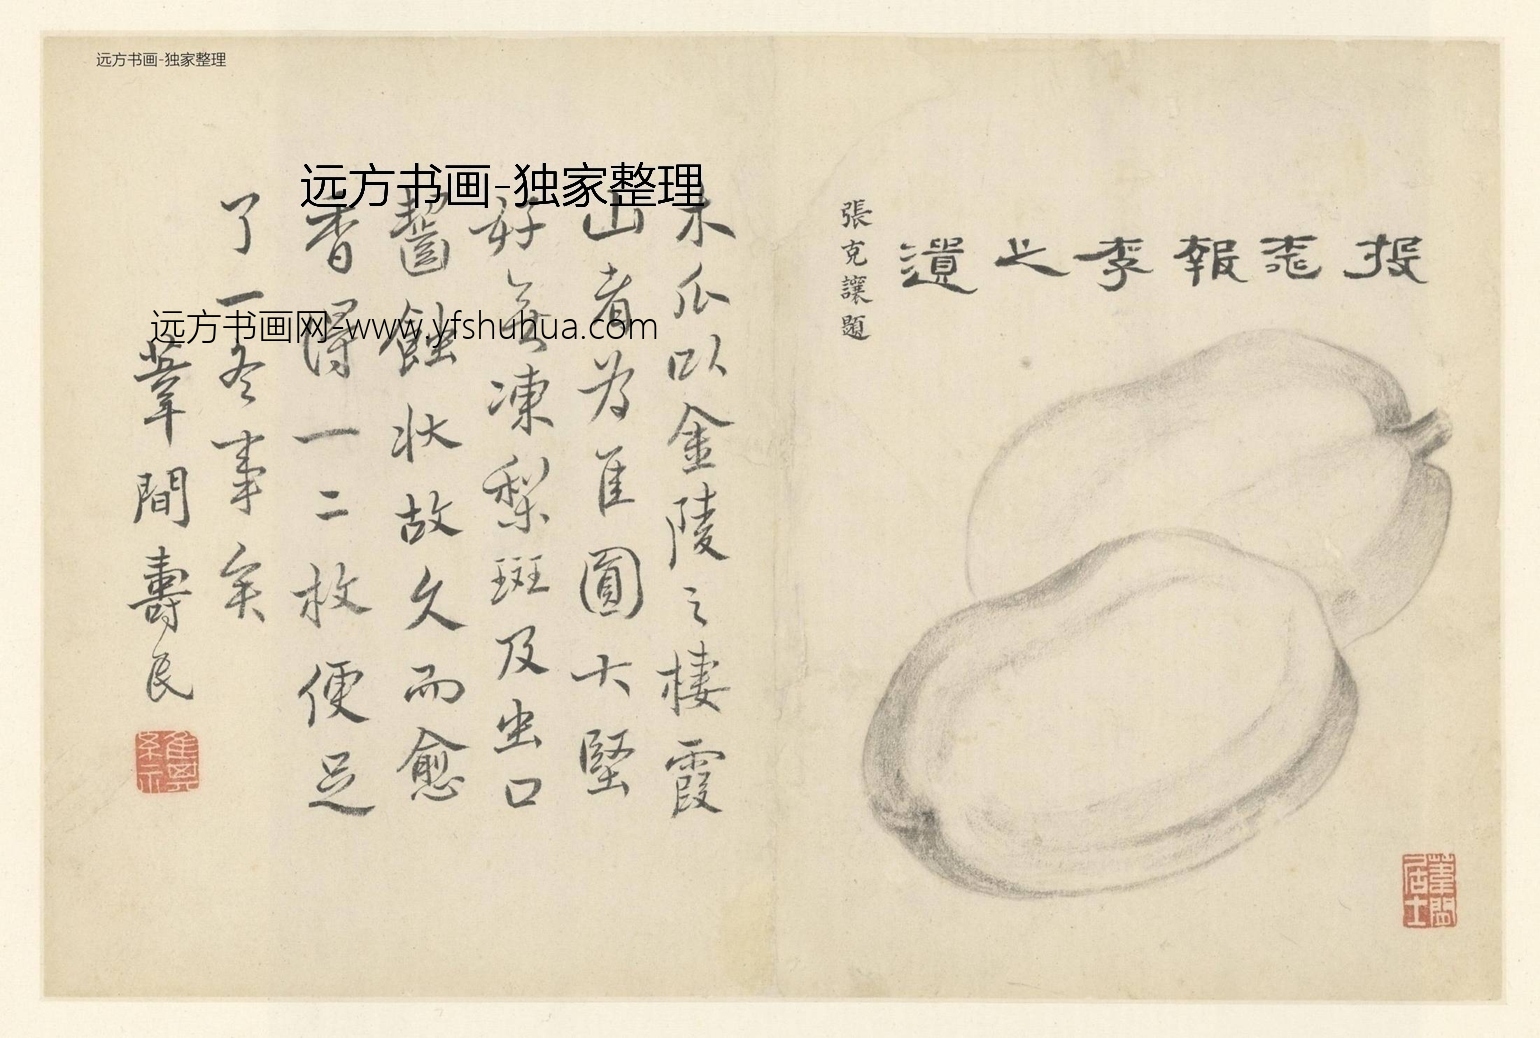 远方书画-独家整理
远方书画-独家整理
远方书画网-www.yfshuhua.com
投桃報李之遺
張克讓題
木瓜以金陵之棲霞
山者為佳圓大堅
好無凍梨斑及虫口
齧蝕状故久而愈
香得一二枚便足
了一冬事矣
葦間壽民
葦間居士